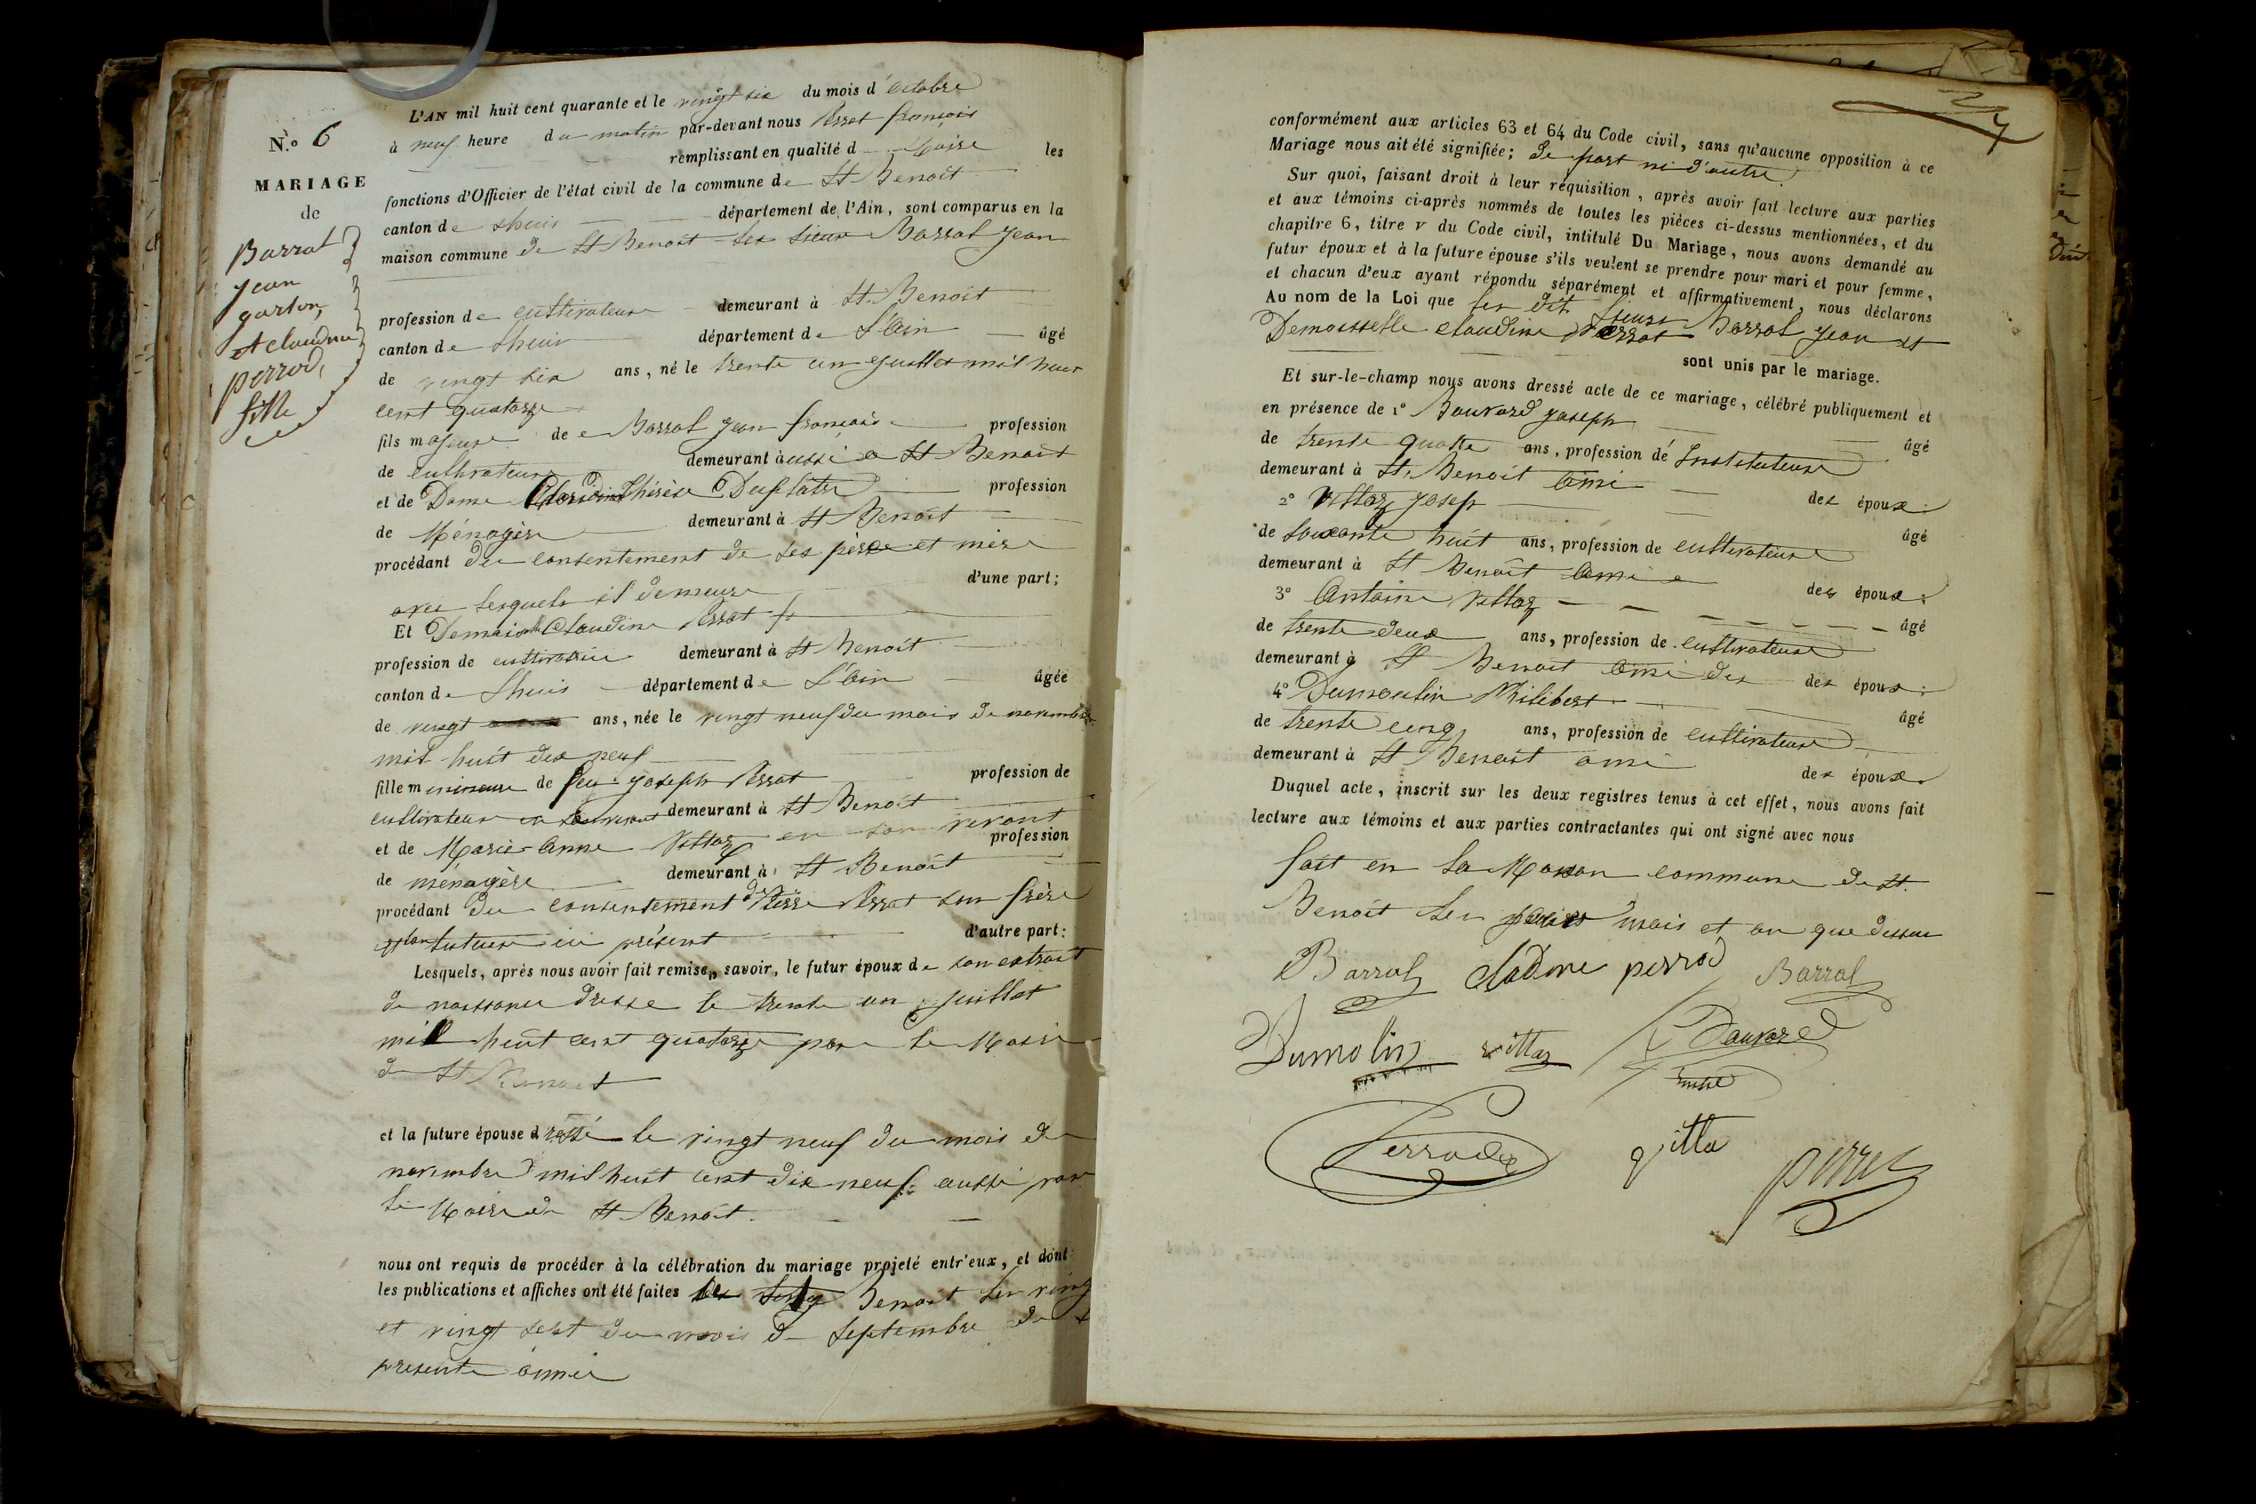 N.o 6
MARIAGE
de
Barral
jean
garson,
et claudine
perrod,
fille
L'AN mil huit cent quarante et le vingt six du mois d'octobre
à neuf heure du matin par-devant nous Perrot françois
remplissant en qualité d Maire les
fonctions d'Officier de l'état civil de la commune de St Benoît
canton de Lhuis département de l'Ain, sont comparus en la
maison commune de St Benoît les sieur Barral jean
profession de cultivateur demeurant à St Benoit
canton de Lhuis département de L'ain âgé
de vingt six ans, né le trente un juillet mil huit
cent quatorze
fils majeur de Barral jean françois profession
de cultivateur demeurant à aussi a St Benoît
et de Dame Thérèse Duplatre profession
de Ménagère demeurant à St Benoit
procédant du consentement de ses père et mère
avec lesquels il demeure d'une part;
Et Demoiselle Claudine Perrot
profession de cultivatrice demeurant à St Benoît
canton de Lhuis département de L'ain âgée
de vingt ans, née le vingt neuf du mois de novembre
mil huit dix neuf
fille mineure de feu joseph Perrot profession de
cultivateur demeurant à St Benoît
et de Marie-Anne Vittoz en son vivant profession
de ménagère demeurant à St Benoît
procédant du consentement de Pierre Perrot son frère
tuteur ici présent d'autre part:
Lesquels, après nous avoir fait remise, savoir, le futur époux de son extrait
de naissance dressé le trente un juillet
mil huit cent quatorze par le Maire
de St Benoit
et la future épouse dressé le vingt neuf du mois de
novembre mil huit cent dix neuf aussi par
le Maire de St Benoît.
nous ont requis de procéder à la célébration du mariage projeté entr'eux, et dont
les publications et affiches ont été faites Benoit les ving
et vingt sept du mois de septembre de
presente année
conformément aux articles 63 et 64 du Code civil, sans qu'aucune opposition à ce
Mariage nous ait été signifiée; de part ni d'autre.
Sur quoi, faisant droit à leur réquisition, après avoir fait lecture aux parties
et aux témoins ci-après nommés de toutes les pièces ci-dessus mentionnées, et du
chapitre 6, titre v du Code civil, intitulé Du Mariage, nous avons demandé au
futur époux et à la future épouse s'ils veulent se prendre pour mari et pour femme,
et chacun d'eux ayant répondu séparément et affirmativement, nous déclarons
Au nom de la Loi que les dit Sieurs Barral jean et
Demoisselle claudine Perrot
sont unis par le mariage.
Et sur-le-champ nous avons dressé acte de ce mariage, célébré publiquement et
en présence de 1o Bouvard joseph âgé
de trente quatre ans, profession de Instituteur
demeurant à St. Benoit ami des époux.
2o Vittoz joseph âgé
de soixante huit ans, profession de cultivateur
demeurant à St Benoît ami des époux:
3o Antoine Vittoz âgé
de trente deux ans, profession de cultivateur
demeurant à St Benoit ami des des époux:
4o Dumoulin Philibert âgé
de trente cinq ans, profession de cultivateur
demeurant à St Benoit ami des époux.
Duquel acte, inscrit sur les deux registres tenus à cet effet, nous avons fait
lecture aux témoins et aux parties contractantes qui ont signé avec nous
fait en la Maison commune de St.
Benoît les jour mois et an que dessus
Barral cladine perrod Barral
Dumolin vittoz Bouvard
vitto